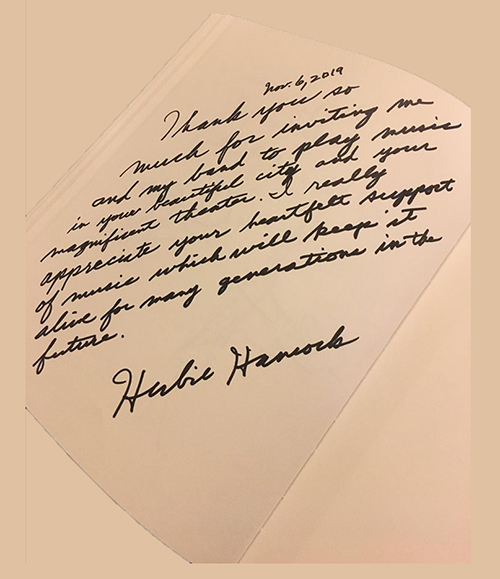 Nov. 6, 2019
Thank you so
much for inviting me
and my band to play music
in your beautiful city and your
magnificent theater. I really
appreciate your heartfelt support
of music which will keep it
alive for many generations in the
future.
Herbie Hancock